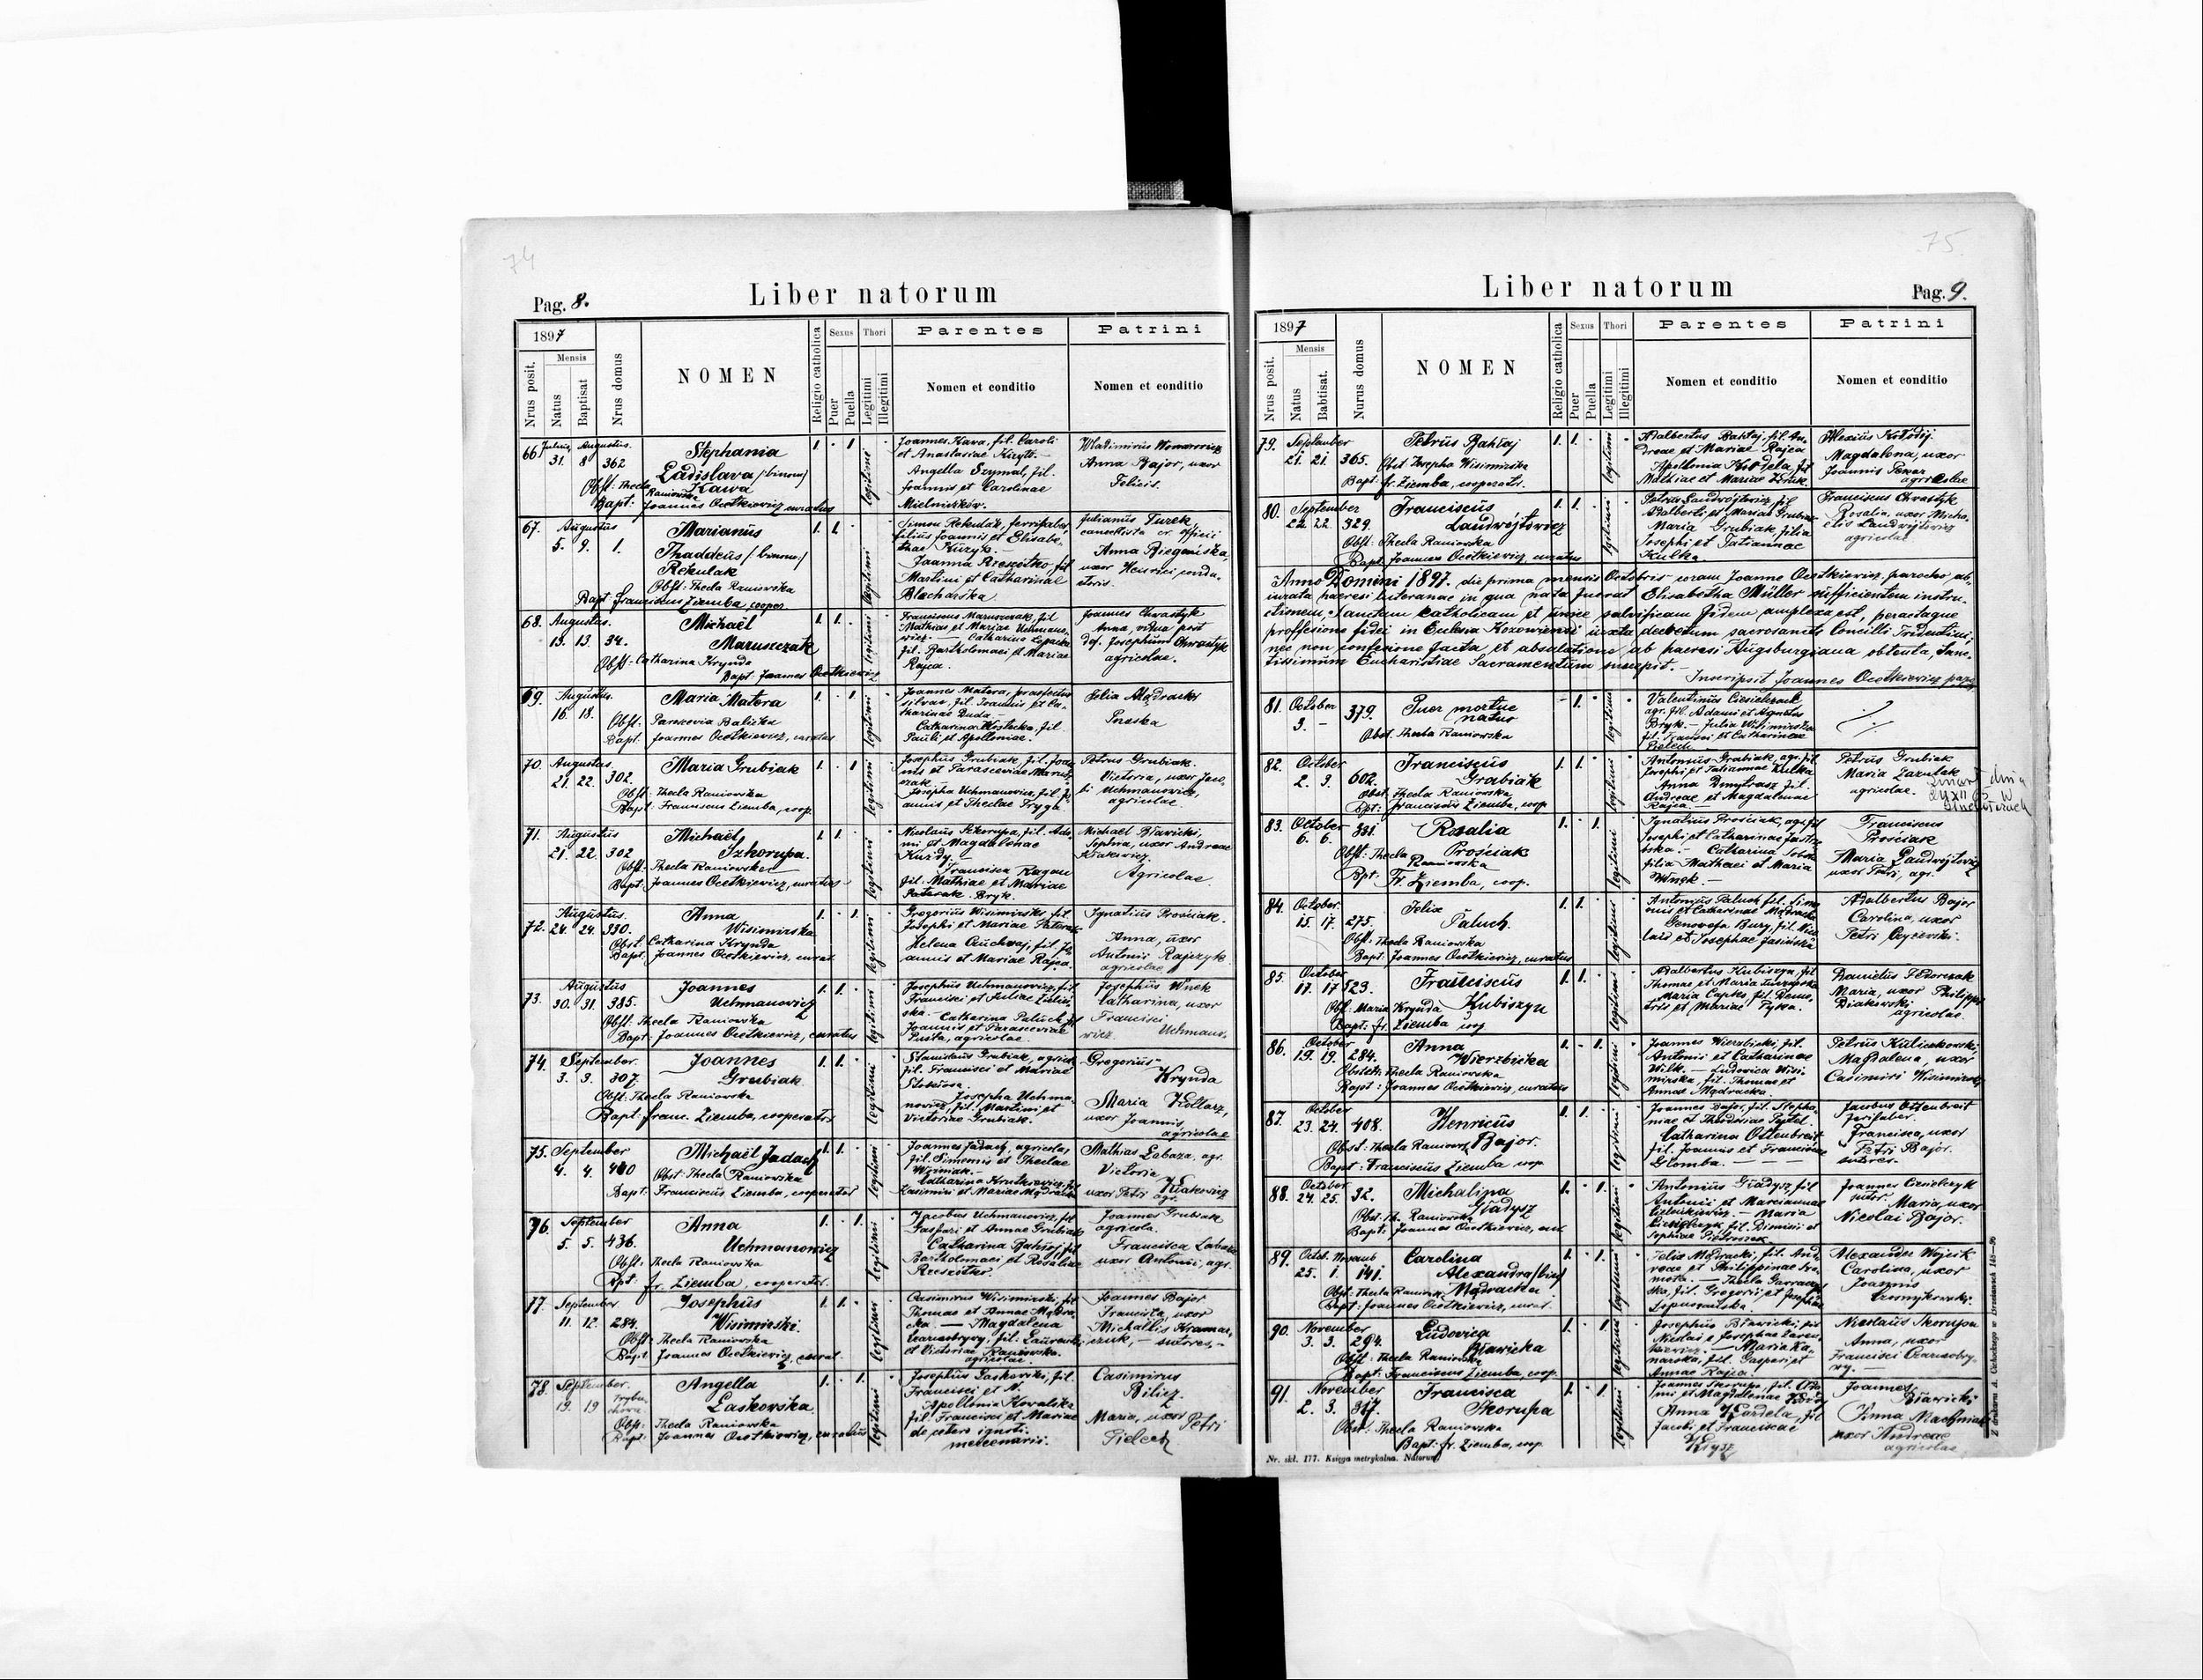 74
Pag. 8.
Liber natorum
1897
Mensis
Nrus posit.
Natus
Baptisat
Nrus domus
NOMEN
Religio catholica
Sexus
Puer
Puella
Thori
Legitimi
Illegitimi
Parentes
Nomen et conditio
Patrini
Nomen et conditio
66 Julius Augustus.
31. 8 362
Stephania
Ladislava /binom/
Kawa
Obst: Thecla Raniowska
Bapt: Joannes Ocetkiewicz curatus
1. - 1.
legitimi
Joannes Kava, fil. Caroli
et Anastasiae
Angella Szymal, fil.
Joannis et Carolinae
Mielniczków.
Wladimirus
Anna Bajor, uxor
Felicis.
67. Augustus
5. 9. 1.
Marianus
Thaddeus /binom/
Rekulak
Obst: Thecla Raniowska
Bapt: Franciscus Ziemba cooper.
1. 1.
legitimi
Simon Rekulak,
filius Joannis et Elisabe-
thae Kuzyk.
Joanna Rzeszótko, fil
Martini et Catharinae
Blacharska
Julianus Turek,
Anna
uxor Henrici condu-
ctoris.
68. Augustus.
13. 13. 34.
Michaël
Maruszczak
Obst: Catharina Krynda
Bapt: Joannes Ocetkiewicz
1. 1.
legitimi
Franciscus Maruszczak, fil
Mathiae et Mariae Uchmano-
wicz. — Catharina
fil. Bartholomaei et Mariae
Rajca.
Joannes Chrastyk
Anna, vidua post
def. Josephum Chrastyk
agricolae.
69. Augustus.
16. 18.
Maria Matera
Obst: Parascevia
Bapt: Joannes Ocetkiewicz, curatus
1. - 1.
legitimi
Joannes Matera, praefectus
silvae, fil. Joannis et Ca-
tharinae Duda. —
Catharina fil
Pauli et Apolloniae.
70. Augustus.
21. 22. 302.
Maria Grubiak
Obst: Thecla Raniowska
Bapt: Franciscus Ziemba, coop.
1. - 1.
legitimi
Josephus Grubiak, fil. Joan-
nis et Parasceviae Marusz-
czak.
Josepha Uchmanowicz, fil. Jo-
annis et Theclae Fryga
Petrus Grubiak.
Victoria, uxor Jaco-
bi Uchmanowicz,
agricolae.
71. Augustus
21. 22. 302
Michaël
Szkorupa.
Obst: Thecla Raniowska
Bapt: Joannes Ocetkiewicz, curatus
1. 1.
legitimi
Nicolaus Szkorupa, fil. Ada-
mi et Magdalenae
Francisca Kagan
fil. Mathiae et Mariae
Michaël Bławicki,
Sophia, uxor Andreae
Krakiewicz.
Agricolae.
72. Augustus.
24. 24. 330.
Anna
Wisimirska
Obst: Catharina Krynda
Bapt: Joannes Ocetkiewicz, curat.
1. - 1.
legitimi
Gregorius Wisimirski, fil.
Josephi et Mariae
Helena fil. Jo-
annis et Mariae Rajca.
Ignatius Prościak.
Anna, uxor
Antonii Rajczyk.
agricolae
73. Augustus
30. 31. 385.
Joannes
Uchmanowicz
Obst: Thecla Raniowska
Bapt: Joannes Ocetkiewicz, curatus
1. 1.
legitimi
Josephus Uchmanowicz, fil
Francisci et Juliae Zielin-
ska. — Catharina Paluch, fil
Joannis et Parasceviae
Pusta, agricolae.
Josephus Wnek
Catharina, uxor
Francisci
Uchmano-
wicz
74. September.
3. 3. 307
Joannes
Grubiak
Obst: Thecla Raniowska
Bapt: Franc. Ziemba, cooperator
1. 1.
legitimi
Stanislaus Grubiak, agricola
fil. Francisci et Mariae
Josepha Uchma-
nowicz, fil. Martini et
Victoriae Grubiak.
Gregorius
Krynda
Maria Kottarz,
uxor Joannis,
agricolae
75. September
4. 4. 400
Michaël Jadach
Obst: Thecla Raniowska
Bapt: Franciscus Ziemba, cooperator
1. 1.
legitimi
Joannes Jadach, agricola,
fil. Simonis et Theclae
Woźniak. —
Catharina Krutkiewicz, fil
Casimiri et Mariae Mądracka
Mathias Łabaza, agr.
Victoria,
uxor Petri
76. September
5. 5. 436.
Anna
Uchmanowicz
Obst: Thecla Raniowska
Bpt: fr. Ziemba, cooperator.
1. - 1.
legitimi
Jacobus Uchmanowicz, fil
Gaspari et Annae Grubiak
Catharina Bahtaj, fil
Bartholomaei et Rosaliae
Rzeszótko.
Joannes Grubiak
agricola.
Francisca Łabaza
uxor Antonii, agr.
77. September
11. 12. 284.
Josephus
Wisimirski.
Obst: Thecla Raniowska
Bapt: Joannes Ocetkiewicz, curat.
1. 1.
legitimi
Casimirus Wisimirski, fil
Thomae et Annae Mądra-
cka. — Magdalena
Czarnobrywy, fil. Laurentii
et Victoriae Raniowska.
agricolae.
Joannes Bajor
Francisca, uxor
Michaëlis Kramar-
czuk, — sutores. —
78. September.
19. 19
Angella
Laskowska
Obst: Thecla Raniowska
Bapt: Joannes Ocetkiewicz, curatus
1. - 1.
legitimi
Josephus Laskowski, fil.
Francisci et N.
Apollonia Kowalska
fil. Francisci et Mariae
de cetero ignoti.
mercenarii.
Casimirus
Bilicz.
Maria, uxor Petri
Pielech
75
Liber natorum
Pag. 9.
1897
Mensis
Nrus posit.
Natus
Babtisat.
Nurus domus
NOMEN
Religio catholica
Sexus
Puer
Puella
Thori
Legitimi
Illegitimi
Parentes
Nomen et conditio
Patrini
Nomen et conditio
79. September
21. 21. 365.
Petrus Bahtaj
Obst Josepha Wisimirska
Bapt: fr. Ziemba, cooperator.
1. 1.
legitimi
Adalbertus Bahtaj, fil. An-
dreae et Mariae Rajca
Apollonia fil
Mathiae et Mariae
Alexius Kołodij.
Magdalena, uxor
Joannis
agricolae
80. September
22. 22. 329.
Franciscus
Landwójtowicz
Obst: Thecla Raniowska
Bapt: Joannes Ocetkiewicz, curatus
1. 1.
legitimi
Petrus Landwójtowicz, fil
Adalberti, et Mariae Grubiak
Maria Grubiak, filia
Josephi et Tatiannae
Kulka.
Franciscus Chrastyk
Rosalia, uxor Micha-
elis Landwójtowicz
agricolae
Anno Domini 1897. die prima mensis Octobris coram Joanne Ocetkiewicz parocho ab-
iurata haeresi luterana in qua nata fuerat Elisabetha Müller sufficientem instru-
ctionem, Sanctam catholicam et unice salvificam fidem amplexa est, peractaque
proffesione fidei in Eclesia Kozowiensi iuxta decretum sacrosancti Concilii Tridentini,
nec non confesione facta et absolutione ab haeresi Augsburgiana obtenta, Sanc-
tissimum Eucharistiae Sacramentum suscepit. —
Inscripsit Joannes Ocetkiewicz
81. October
3. - 379.
Puer mortue
natus
Obst. Thecla Raniowska
- 1.
legitimi
Valentinus Ciesielczuk
agr. fil. Adami et Agnetis
Bryk. — Julia Wisimirska
fil. Francisci et Catharinae
Pielech.
82. October
2. 3. 602.
Franciscus
Grubiak
Obst. Thecla Raniowska
Bpt: Franciscus Ziemba, coop.
1. 1.
legitimi
Antonius Grubiak, agr. fil
Josephi, et Tatiannae Kulka
Anna Dmytrasz fil.
Andreae et Magdalenae
Rajca. —
Petrus Grubiak
Maria
agricolae.
Zmarł dnia
83. October
6. 6. 381.
Rosalia
Prościak
Obst: Thecla Raniowska
Bpt: Fr. Ziemba, coop.
1. - 1.
legitimi
Ignatius Prościak, agr. fil
Josephi et Catharinae Jastrze-
bska. — Catharina
filia Mathaei et Maria
Wnęk. —
Franciscus
Prościak
Maria Landwójtowicz
uxor Petri, agr.
84. October.
15. 17. 275.
Felix
Paluch.
Obst: Thecla Raniowska
Bapt: Joannes Ocetkiewicz, curatus
1. 1.
legitimi
Antonius Paluch, fil. Simo-
nis et Catharinae Mądracka
Genovefa Bury, fil. Nico-
lai et Josephae Jasińska
Adalbertus Bajor
Carolina, uxor
Petri
85. October
17. 17. 523.
Franciscus
Kubiszyn
Obst: Maria Krynda
Bapt: fr. Ziemba coop
1. 1.
legitimi
Adalbertus Kubiszyn, fil
Thomae et Maria
Maria fil. Deme-
trii et Mariae Pyska.
Danielus Fedorczak
Maria, uxor Philippi
Diakowski
agricolae.
86. October
19. 19. 284.
Anna
Wierzbicka
Obstetr: Thecla Raniowska
Bapt: Joannes Ocetkiewicz, curatus
1. - 1.
legitimi
Joannes Wierzbicki, fil.
Antonii et Catharinae
Wilk. — Ludovica Wisi-
mirska, fil. Thomae et
Annae Mądracka.
Petrus Kulickowski
Magdalena, uxor
Casimiri Wisimirski
87. October
23. 24. 408.
Henricus
Bajor.
Obst: Thecla Raniows.
Bapt: Franciscus Ziemba coop
1. 1.
legitimi
Joannes Bajor, fil. Stepha-
niae et Theodosiae
Catharina Ottenbreit
fil. Joannis et Franciscae
Glomba. — — —
Jacobus Ottenbreit
Francisca, uxor
Petri Bajor.
sutores.
88. October
24. 25. 32.
Michalina
Gładysz
Obst: Th. Raniowska
Bapt: Joannes Ocetkiewicz, cur.
1. - 1.
legitimi
Antonius Gładysz, fil
Antonii et Marciannae
Maria
fil. Dionisii et
Sophiae Pietraszek.
Joannes
sutor. Maria, uxor
Nicolai Bajor.
89. Octob. Novemb
25. 1. 141.
Carolina
Alexandra /bin/
Mądracka
Obst: Thecla Raniowska
Bapt: Joannes Ocetkiewicz, curat.
1. - 1.
legitimi
Felix Mądracki, fil. And-
reae et Philippinae
Thecla
fil. Gregorii et Josephae
Łopuszańska.
Alexander Wójcik
Carolina, uxor
Joannis
90. November
3. 3. 294.
Ludovica
Bławicka
Obst: Thecla Raniowska
Bapt: Franciscus Ziemba, coop.
1. - 1.
legitimi
Josephus Bławicki, fil
Nicolai et Josephae
Maria
fil. Gaspari et
Annae Rajca.
Nicolaus Skorupa
Anna, uxor
Francisci Czarnobry-
wy. —
91. November
2. 3. 317.
Francisca
Skorupa
Obst: Thecla Raniowska
Bapt: fr. Ziemba, coop.
1. - 1.
legitimi
Joannes Skorupa, fil. Ada-
mi et Magdalenae
Anna Kardela, fil
Jacobi et Franciscae
Joannes
Bławicki
Anna
uxor Andreae
agricolae
Nr. skł. 177. Księga metrykalna. Natorum
Z drukarni A. Cichockiego w Brzeżanach 148—96